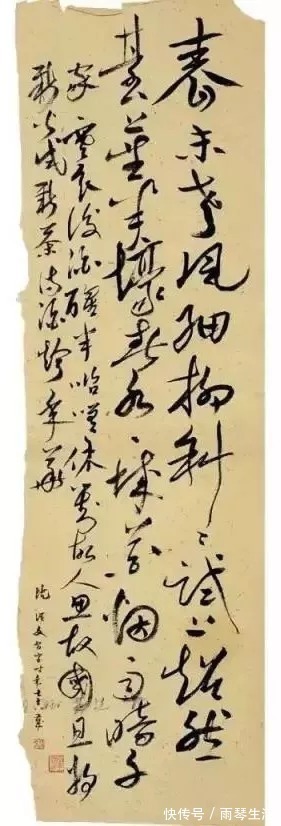 春未老風細柳斜斜試上超然
臺上看半壕春水一城花烟雨暗千
家寒食後酒醒却咨嗟休對故人思故國且將
新火試新茶詩酒趁年華
快传号 / 雨琴生活